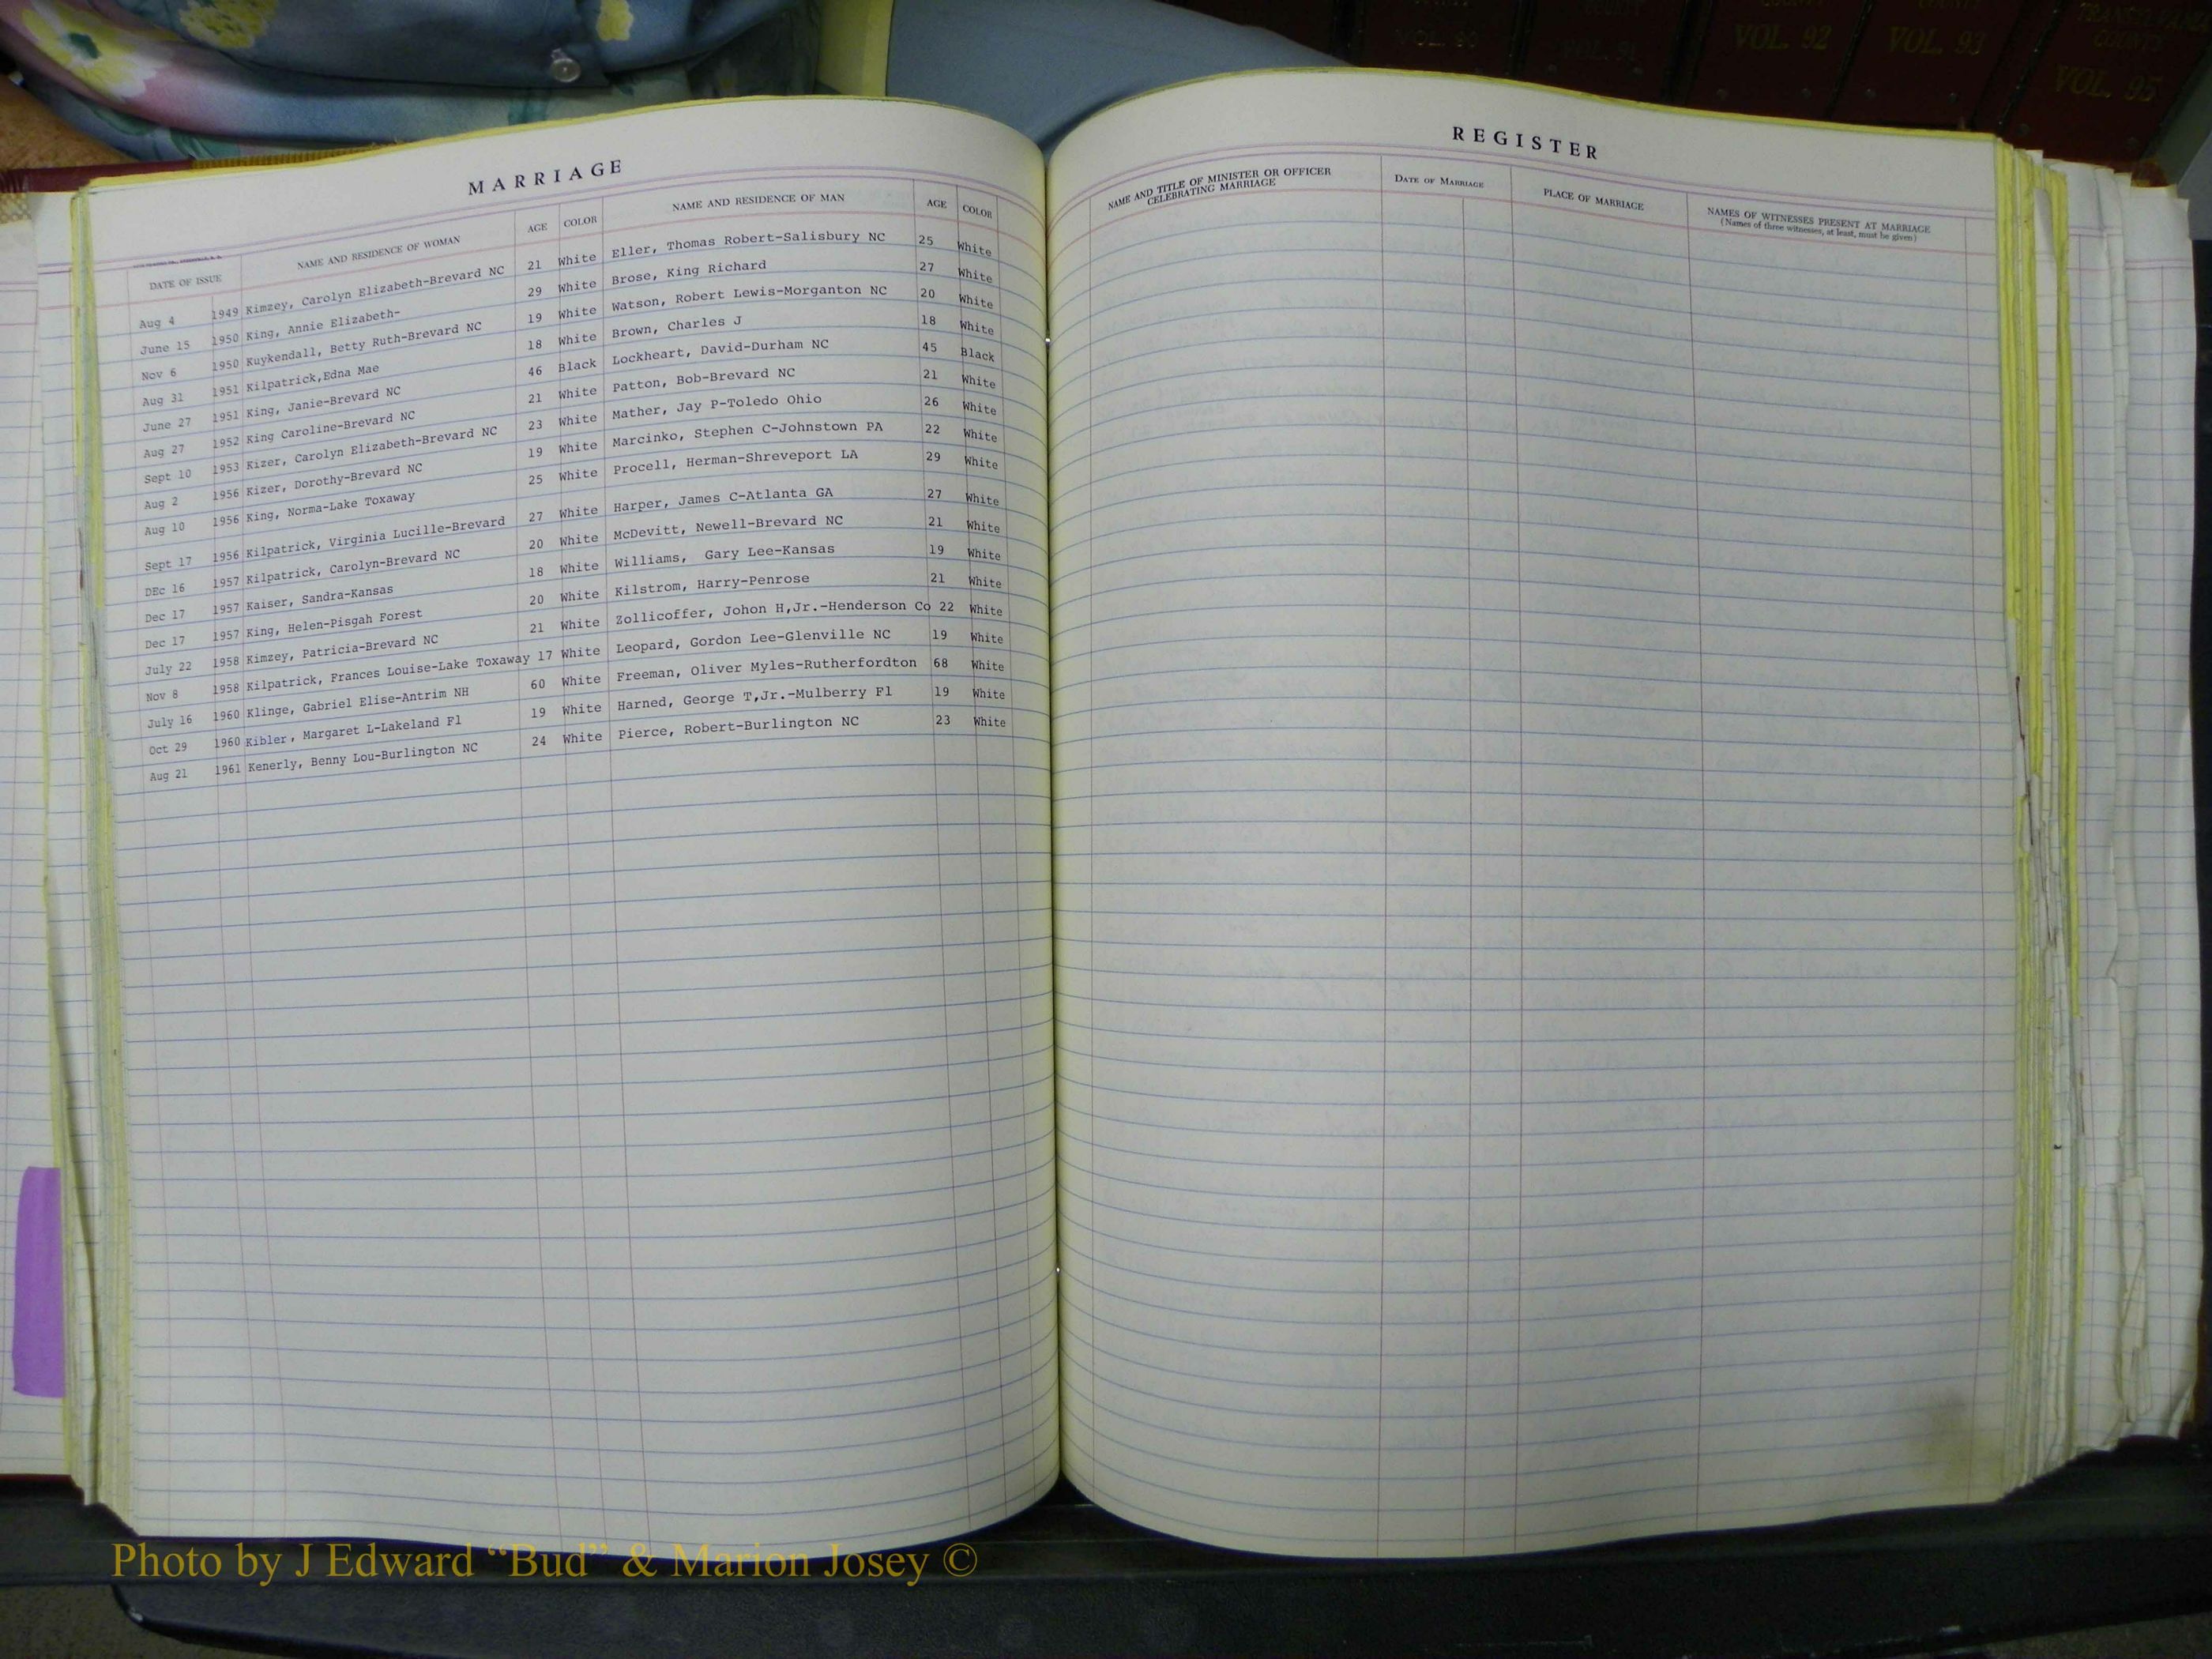 COUNTY COUNTY COUNTY COUNTY TRANSYLVANIA
VOL. 92 VOL. 93 COUNTY
VOL. 95
MARRIAGE
DATE OF ISSUE NAME AND RESIDENCE OF WOMAN AGE COLOR NAME AND RESIDENCE OF MAN AGE COLOR
Aug 4 1949 Kimzey, Carolyn Elizabeth-Brevard NC 21 White Eller, Thomas Robert-Salisbury NC 25 White
June 15 1950 King, Annie Elizabeth- 29 White Brose, King Richard 27 White
Nov 6 1950 Kuykendall, Betty Ruth-Brevard NC 19 White Watson, Robert Lewis-Morganton NC 20 White
Aug 31 1951 Kilpatrick,Edna Mae 18 White Brown, Charles J 18 White
June 27 1951 King, Janie-Brevard NC 46 Black Lockheart, David-Durham NC 45 Black
Aug 27 1952 King Caroline-Brevard NC 21 White Patton, Bob-Brevard NC 21 White
Sept 10 1953 Kizer, Carolyn Elizabeth-Brevard NC 23 White Mather, Jay P-Toledo Ohio 26 White
Aug 2 1956 Kizer, Dorothy-Brevard NC 19 White Marcinko, Stephen C-Johnstown PA 22 White
Aug 10 1956 King, Norma-Lake Toxaway 25 White Procell, Herman-Shreveport LA 29 White
Sept 17 1956 Kilpatrick, Virginia Lucille-Brevard 27 White Harper, James C-Atlanta GA 27 White
DEc 16 1957 Kilpatrick, Carolyn-Brevard NC 20 White McDevitt, Newell-Brevard NC 21 White
Dec 17 1957 Kaiser, Sandra-Kansas 18 White Williams, Gary Lee-Kansas 19 White
Dec 17 1957 King, Helen-Pisgah Forest 20 White Kilstrom, Harry-Penrose 21 White
July 22 1958 Kimzey, Patricia-Brevard NC 21 White Zollicoffer, Johon H,Jr.-Henderson Co 22 White
Nov 8 1958 Kilpatrick, Frances Louise-Lake Toxaway 17 White Leopard, Gordon Lee-Glenville NC 19 White
July 16 1960 Klinge, Gabriel Elise-Antrim NH 60 White Freeman, Oliver Myles-Rutherfordton 68 White
Oct 29 1960 Kibler, Margaret L-Lakeland Fl 19 White Harned, George T,Jr.-Mulberry Fl 19 White
Aug 21 1961 Kenerly, Benny Lou-Burlington NC 24 White Pierce, Robert-Burlington NC 23 White
REGISTER
NAME AND TITLE OF MINISTER OR OFFICER CELEBRATING MARRIAGE DATE OF MARRIAGE PLACE OF MARRIAGE NAMES OF WITNESSES PRESENT AT MARRIAGE
(Names of three witnesses, at least, must be given)
Photo by J Edward “Bud” & Marion Josey ©